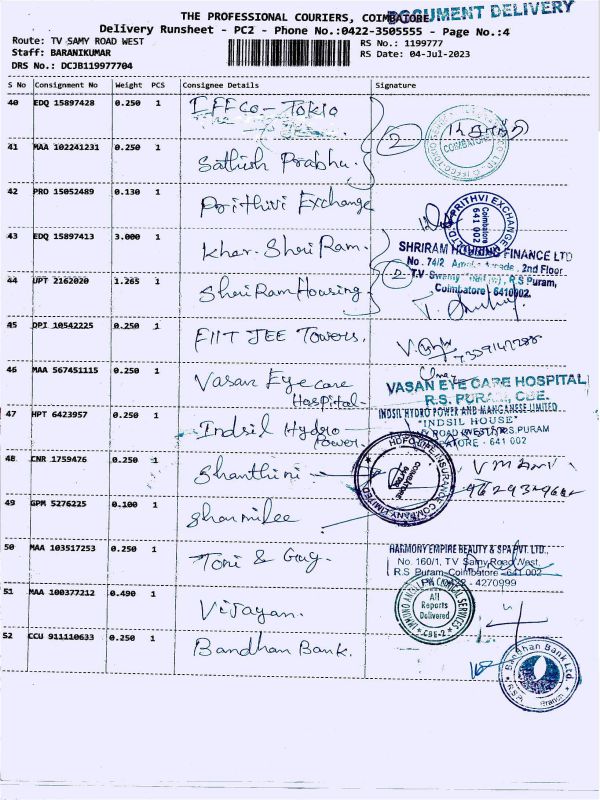 THE PROFESSIONAL COURIERS, COIMBATORE
DOCUMENT DELIVERY
Delivery Runsheet - PC2 - Phone No.:0422-3505555 - Page No.:4
Route: TV SAMY ROAD WEST
RS No.: 1199777
Staff: BARANIKUMAR
RS Date: 04-Jul-2023
DRS No.: DCJB119977704
S No Consignment No Weight PCS Consignee Details Signature
40 EDQ 15897428 0.250 1 IFFCO - Tokio
41 MAA 102241231 0.250 1 Sathish Prabhu.
2
COIMBATORE
42 PRO 15052489 0.130 1 Prithivi Exchange
PRITHVI EXCHANGE
Coimbatore
641 002
43 EDQ 15897413 3.000 1 Khar. Shri Ram.
SHRIRAM HOUSING FINANCE LTD
No. 74/2 2nd Floor
44 UPT 2162020 1.265 1 Shri Ram Housing
2
T.V Swamy R.S Puram,
Coimbatore - 641002.
45 DPI 10542225 0.250 1 FIIT JEE Towers.
46 MAA 567451115 0.250 1 Vasan Eye care
Hospital-
VASAN EYE CARE HOSPITAL
R.S. PURAM, CBE.
47 HPT 6423957 0.250 1 Indsil Hydro
Power.
INDSIL HYDRO POWER AND MANGANESE LIMITED
"INDSIL HOUSE"
ROAD (WEST) R.S.PURAM
- 641 002
48 CNR 1759476 0.250 1 Shanthini
HDFC LIFE INSURANCE COMPANY LIMITED
COIMBATORE
49 GPM 5276225 0.100 1 Sharmilee
50 MAA 103517253 0.250 1 Toni & Guy.
HARMONY EMPIRE BEAUTY & SPA PVT. LTD.,
No. 160/1, TV Samy Road West,
R.S Puram Coimbatore - 641 002
- 4270999
51 MAA 100377212 0.490 1 Vijayan.
All
Reports
Delivered
CBE-2
52 CCU 911110633 0.250 1 Bandhan Bank.
Bandhan Bank Ltd.